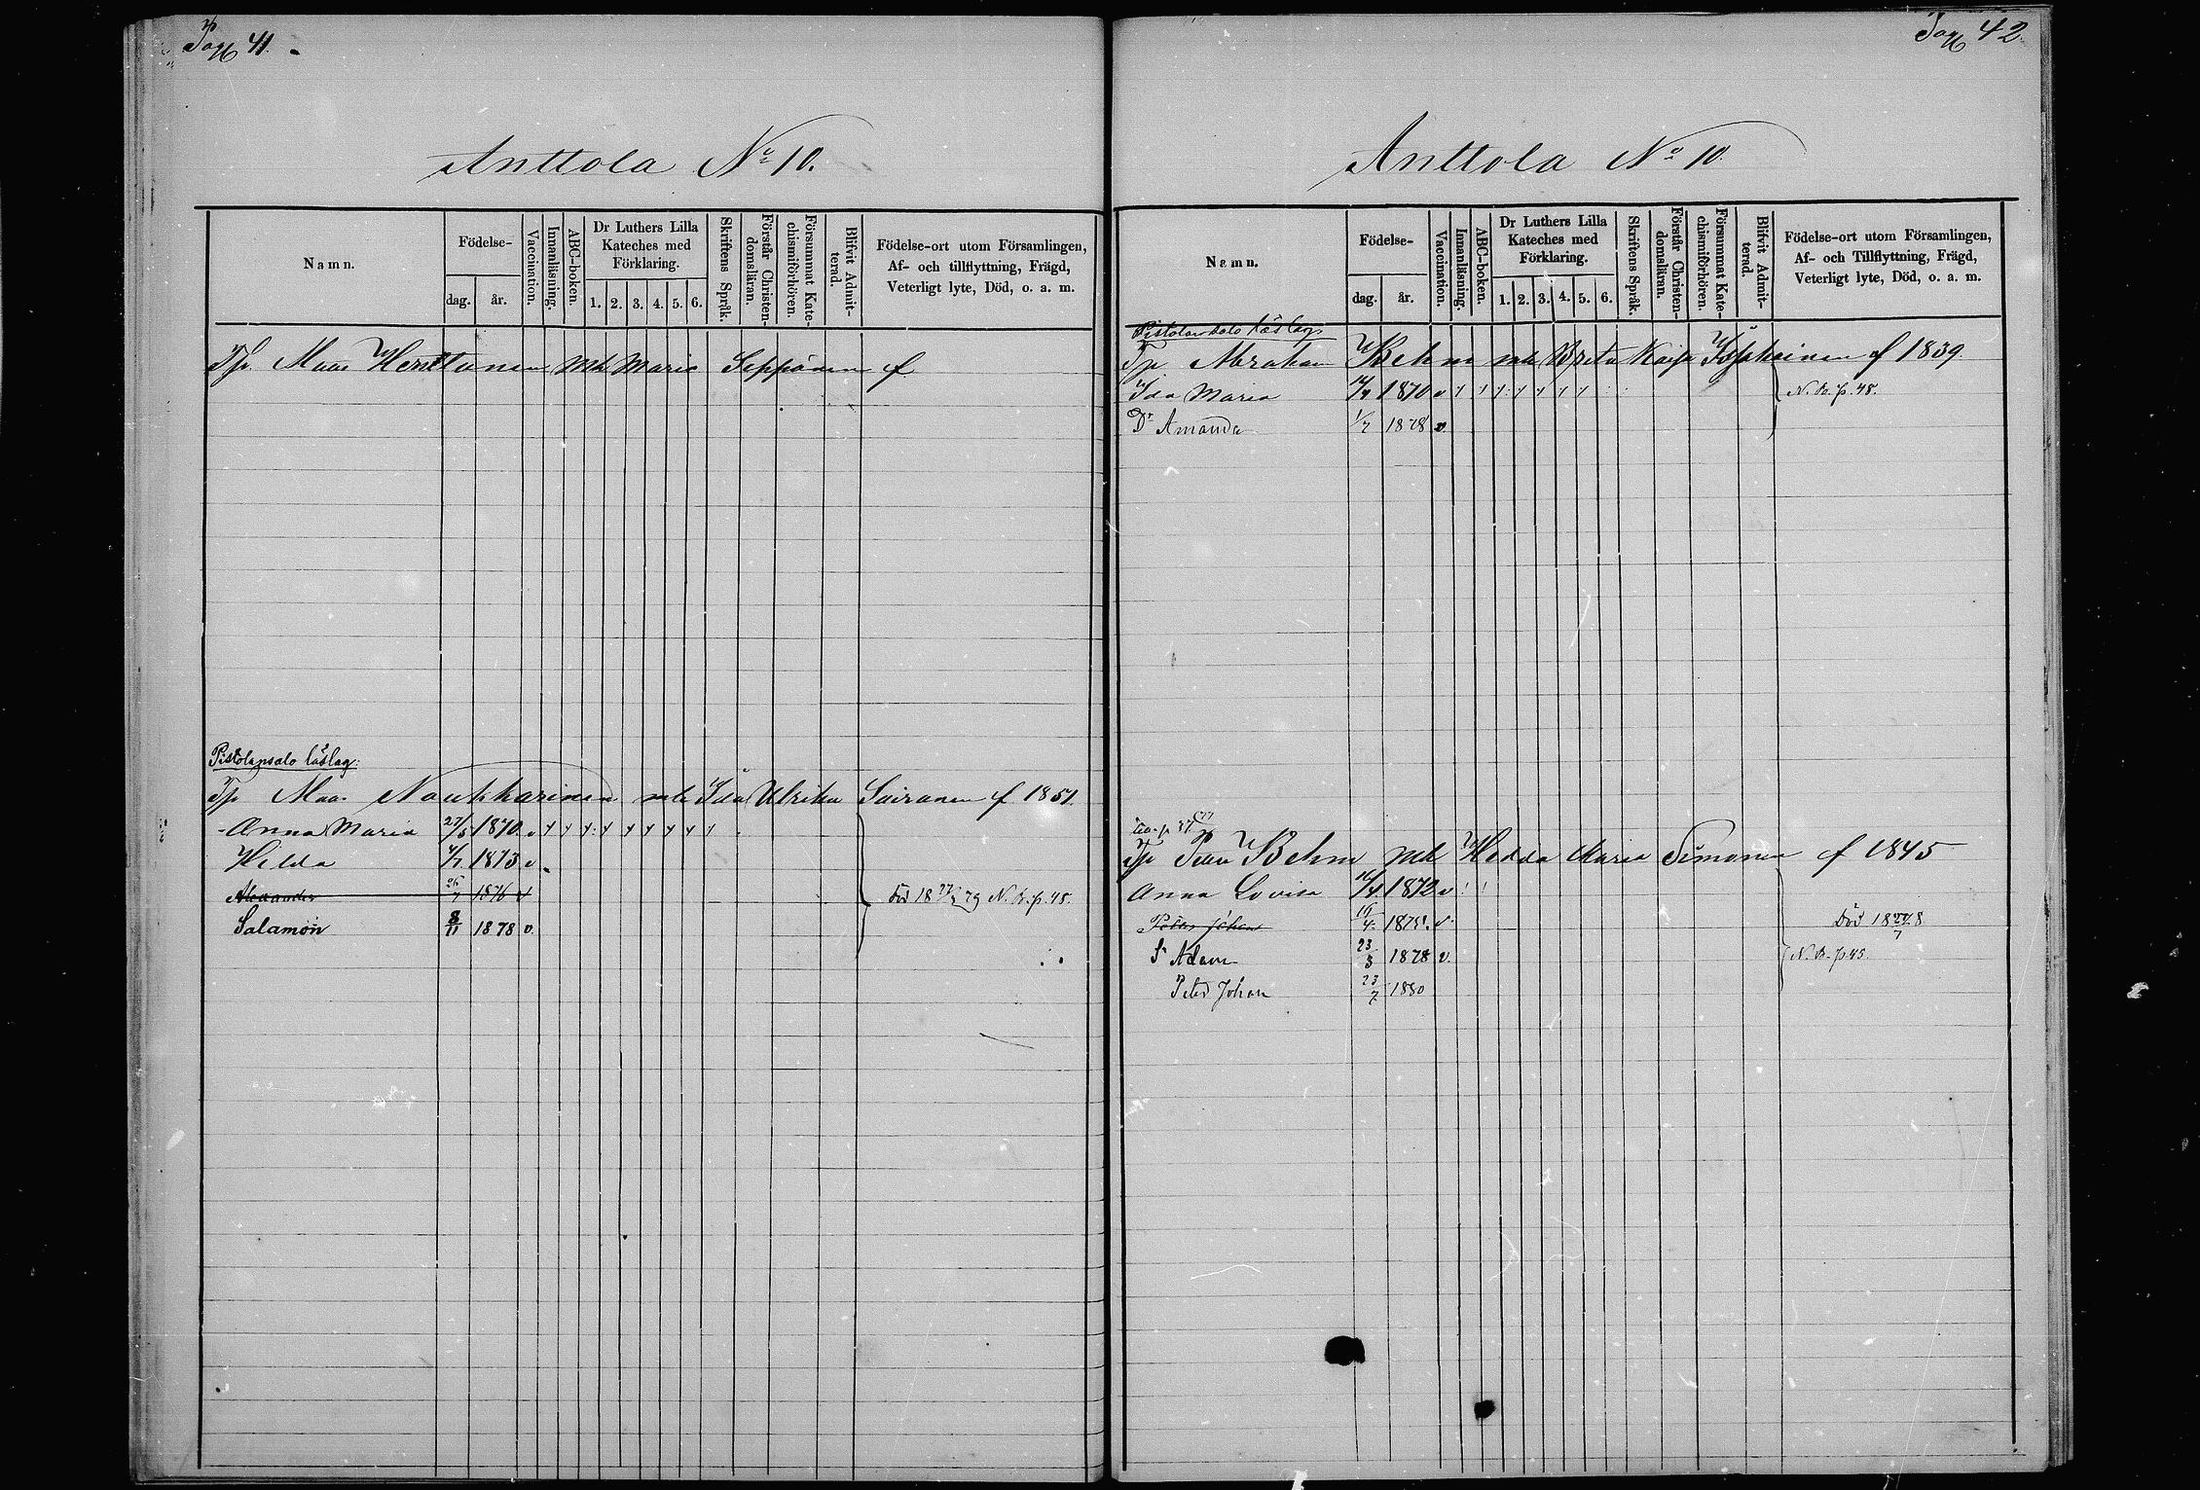 Pag 41.
Anttola No 10.
Namn.
Födelse-
dag.
år.
Vaccination.
Innanläsning.
ABC-boken.
Dr Luthers Lilla
Kateches med
Förklaring.
1. 2. 3. 4. 5. 6.
Skriftens Språk.
Förstår Christen-
domsläran.
Försummat Kate-
chismiförhören.
Blifvit Admit-
terad.
Födelse-ort utom Församlingen,
Af- och tillflyttning, Frägd,
Veterligt lyte, Död, o. a. m.
Tp. Maas Henttunen mh Maria Seppänen f
Pistolansalo läslag:
Tp Maas Naukkarinen mh Ida Ulrika Sairanen f 1851.
Anna Maria 27/5 1870. v
Helda 1873 v
Alexander 26/7 1876 v Död 18 79 N. B. p. 48.
Salamon 8/11 1878 v.
Pag 42.
Anttola No 10
Namn.
Födelse-
dag.
år.
Vaccination.
Innanläsning.
ABC-boken.
Dr Luthers Lilla
Kateches med
Förklaring.
1. 2. 3. 4. 5. 6.
Skriftens Språk.
Förstår Christen-
domsläran.
Försummat Kate-
chismiförhören.
Blifvit Admit-
terad.
Födelse-ort utom Församlingen,
Af- och Tillflyttning, Frägd,
Veterligt lyte, Död, o. a. m.
Pistolansalo läslag
Tp. Abraham Behm mh Breta Kaisa f 1839.
Ida Maria 1870 v N. B. p. 48.
Dr Amanda 1/7 1878 v.
Tp Petter Behm mh Hedda Maria Simonen f 1845
Anna Lovisa 16/4 1872 v
Petter Johan 16/4 1875. v Död 18 27/7 78
S. Adam 23/3 1878 v. N. B. p. 45.
Peter Johan 23/7 1880